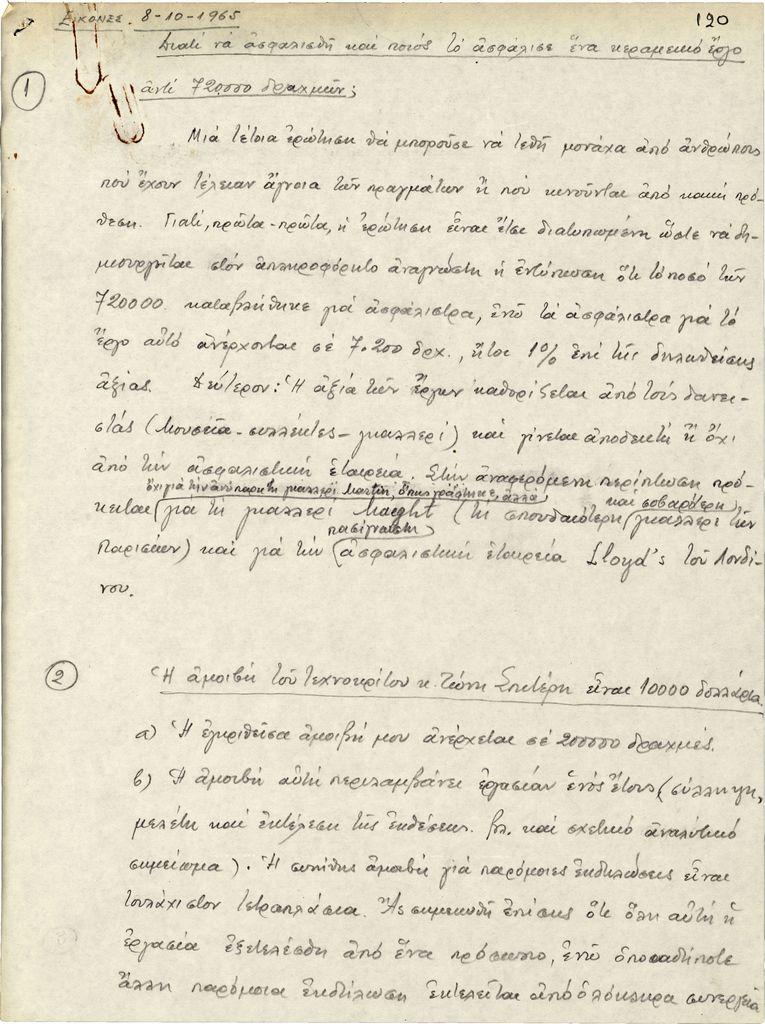 ΕΙΚΟΝΕΣ. 8-10-1965
120
Διατί νά ἀσφαλισθῆ καί ποιός τό ἀσφάλισε ἕνα κεραμεικό ἔργο
1
ἀντί 720.000 δραχμῶν;
Μιά τέτοια ἐρώτηση θά μποροῦσε νά τεθῆ μονάχα ἀπό ἀνθρώπους
πού ἔχουν τέλειαν ἄγνοια τῶν πραγμάτων ἤ πού κινοῦνται ἀπό κακή πρό-
θεση. Γιατί, πρῶτα-πρῶτα, ἡ ἐρώτηση εἶναι ἔτσι διατυπωμένη ὥστε νά δη-
μιουργῆται στόν ἀπληροφόρητο ἀναγνώστη ἡ ἐντύπωση ὅτι τό ποσό τῶν
720000 καταβλήθηκε γιά ἀσφάλιστρα, ἐνῶ τά ἀσφάλιστρα γιά τό
ἔργο αὐτό ἀνέρχονται σέ 7.200 δρχ., ἤτοι 1% ἐπί τῆς δηλωθείσης
ἀξίας. Δεύτερον: Ἡ ἀξία τῶν ἔργων καθορίζεται ἀπό τούς δανει-
στάς (Μουσεῖα-συλλέκτες-γκαλλερί) καί γίνεται ἀποδεκτή ἤ ὄχι
ἀπό τήν ἀσφαλιστική ἑταιρεία. Στήν ἀναφερόμενη περίπτωση πρό-
ὄχι γιά τήν ἀνύπαρκτη γκαλλερί Martin, ὅπως γράφτηκε, ἀλλά
καί σοβαρότερη
κειται (γιά τή γκαλλερί Maeght (τή σπουδαιότερη (γκαλλερί τῶν
πασίγνωστη
Παρισίων) καί γιά τήν (ἀσφαλιστική ἑταιρεία Lloyd's τοῦ Λονδί-
νου.
2
Ἡ ἀμοιβή τοῦ τεχνοκρίτου κ. Τώνη Σπητέρη εἶναι 10000 δολλάρια.
α) Ἡ ἐγκριθεῖσα ἀμοιβή μου ἀνέρχεται σέ 200000 δραχμές.
β) Ἡ ἀμοιβή αὐτή περιλαμβάνει ἐργασίαν ἑνός ἔτους (σύλληψη,
μελέτη καί ἐκτέλεση τῆς ἐκθέσεως. βλ. καί σχετικό ἀναλυτικό
σημείωμα). Ἡ συνήθης ἀμοιβή γιά παρόμοιες ἐκδηλώσεις εἶναι
τουλάχιστον τετραπλάσια. Ἄς σημειωθῆ ἐπίσης ὅτι ὅλη αὐτή ἡ
ἐργασία ἐξετελέσθη ἀπό ἕνα πρόσωπο, ἐνῶ ὁποιαδήποτε
ἄλλη παρόμοια ἐκδήλωση ἐκτελεῖται ἀπό ὁλόκληρα συνεργεῖα